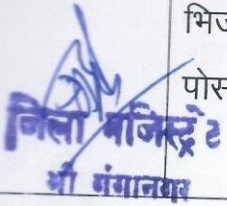 भिज
पोस
जिला मजिस्ट्रेट
श्री गंगानगर